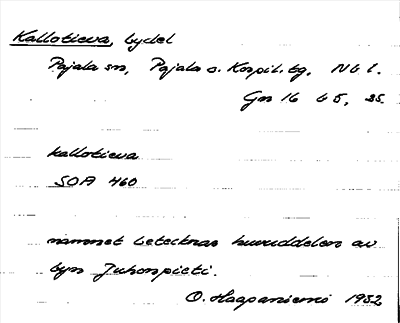 Kallotieva, bydel
Pajala sn, Pajala o. Korpil. tg, Nb l.
Gn 16 65, 35.
kallotieva
SOA 460
namnet betecknar huvuddelen av
byn Juhonpieti.
O. Haapaniemi 1932